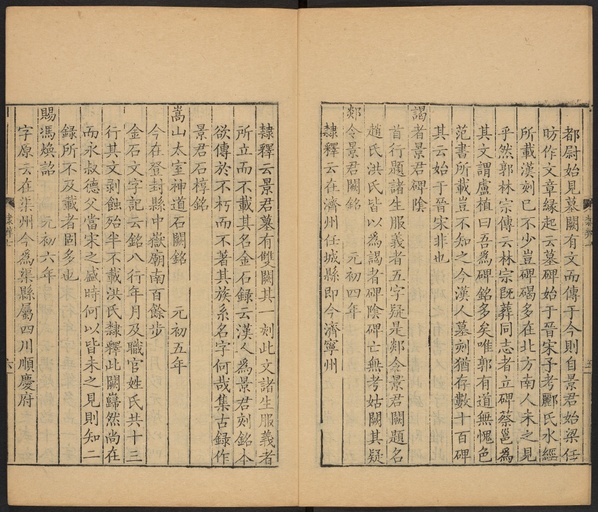 都尉始見墓闕有文而傳于今則自景君始梁任
昉作文章緣起云墓碑始于晉宋予考酈氏水經
所載漢刻已不少豈碑碣多在北方南人未之見
乎然郭林宗傳云林宗既葬同志者立碑蔡邕為
其文謂盧植曰吾為碑銘多矣唯郭有道無愧色
范書所載豈不知之今漢人墓刻猶存數十百碑
其云始于晉宋非也
謁者景君碑陰
首行題諸生服義者五字疑是郯令景君闕題名
趙氏洪氏皆以為謁者碑陰碑亡無考姑闕其疑
郯令景君闕銘 元初四年
隸釋云在濟州任城縣即今濟寧州
隸釋云景君墓有雙闕其一刻此文諸生服義者
所立而不載其名金石錄云漢人為景君刻銘令
欲傳於不朽而不著其族系名字何哉集古錄作
景君石椁銘
嵩山太室神道石闕銘 元初五年
今在登封縣中嶽廟南百餘步
金石文字記云銘八行年月及職官姓氏共十三
行其文剝蝕殆半不載洪氏隸釋此闕巋然尚在
而永叔德父當宋之盛時何以皆未之見則知二
錄所不及載者固多也
賜馮煥詔 元初六年
字原云在渠州今為渠縣屬四川順慶府
隸辨七
六